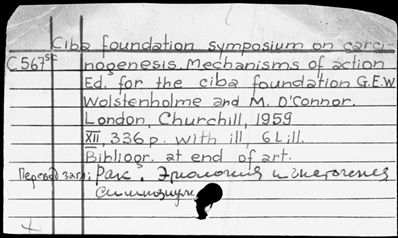 Ciba foundation symposium on carci
C567sc nogenesis. Mechanisms of action
Ed. for the ciba foundation G.E.W
Wolstenholme and M. O'Connor.
London, Churchill, 1959
XII, 336 p. with ill, 6 L ill.
Bibliogr. at end of art.
Перевод загл: Рак. Этиология и
симпозиум